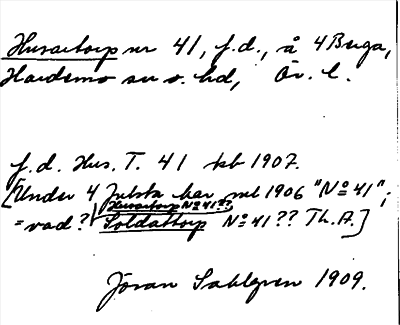 Husartorp nr 41, f.d., å 4 Berga,
Hardemo sn o. hd, Ör. l.
f.d. Hus. T. 41 kb 1907.
[Under 4 Julsta har ml 1906 "No 41";
Husartorp No 41??
= vad? Soldattorp No 41?? Th. A.]
Jöran Sahlgren 1909.